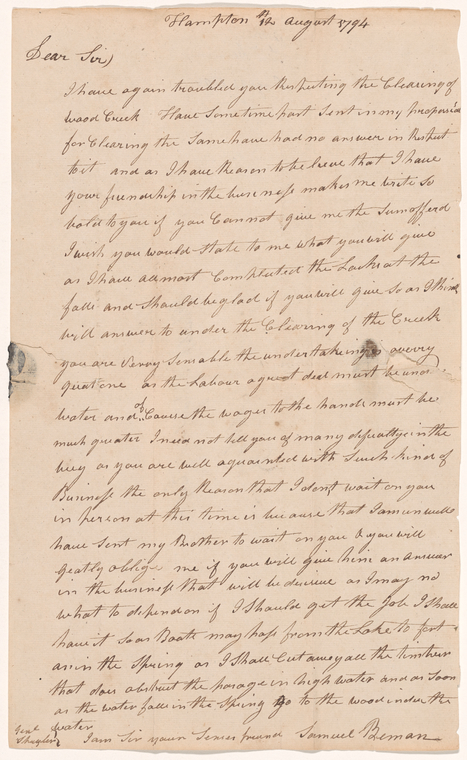 Hampton 12th August 1794
Dear Sir,
I have again troubled you Respecting the Clearing of
Wood Creek Have Sometime past Sent in my proposial
for Clearing the Same have had no answer in Respect
to it and as I have Reason to be lieve that I have
your friendship in the business makes me write So
bold to you if you Cannot give me the Sum offerd
I wish you would State to me what you will give
as I have allmost Compleated the Locks at the
falls and Should be glad if you will give So as I think
will answer to under the Clearing of the Creek
you are Verry Sensable the undertaking is a verry
great one as the Labour a great deal must be und
Water and of Cause the wages to the hands must be
much greater I need not tell you of many difeualtys in the
way as you are well aquanted with Such kind of
Business the only Reason that I dont wait on you
in person at this time is because that I am unwell
have Sent my Brother to wait on you & you will
geatly oblige me if you will give him an answer
in the business that will be decisive as I may no
what to depend on if I Should get the Job I Shall
have it So as Boats may pass from the Lake to fort
as in the Spring as I Shall Cut away all the timber
that dous obstruct the pasage in high water and as Soon
as the water falls in the Spring go to the wood under the
water
I am Sir your Senser friend Samuel Beman
Genl
Shuyler